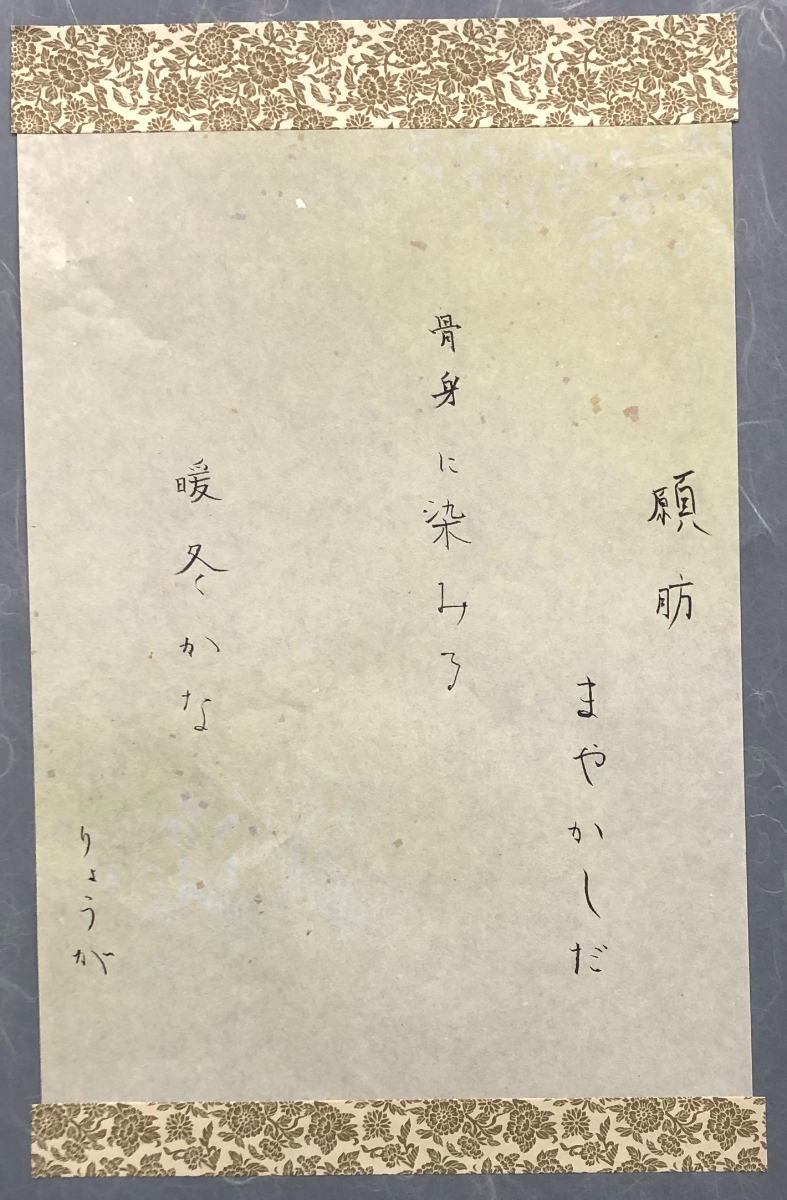 願肪
まやかしだ
骨身に染みる
暖冬かな
りょうが